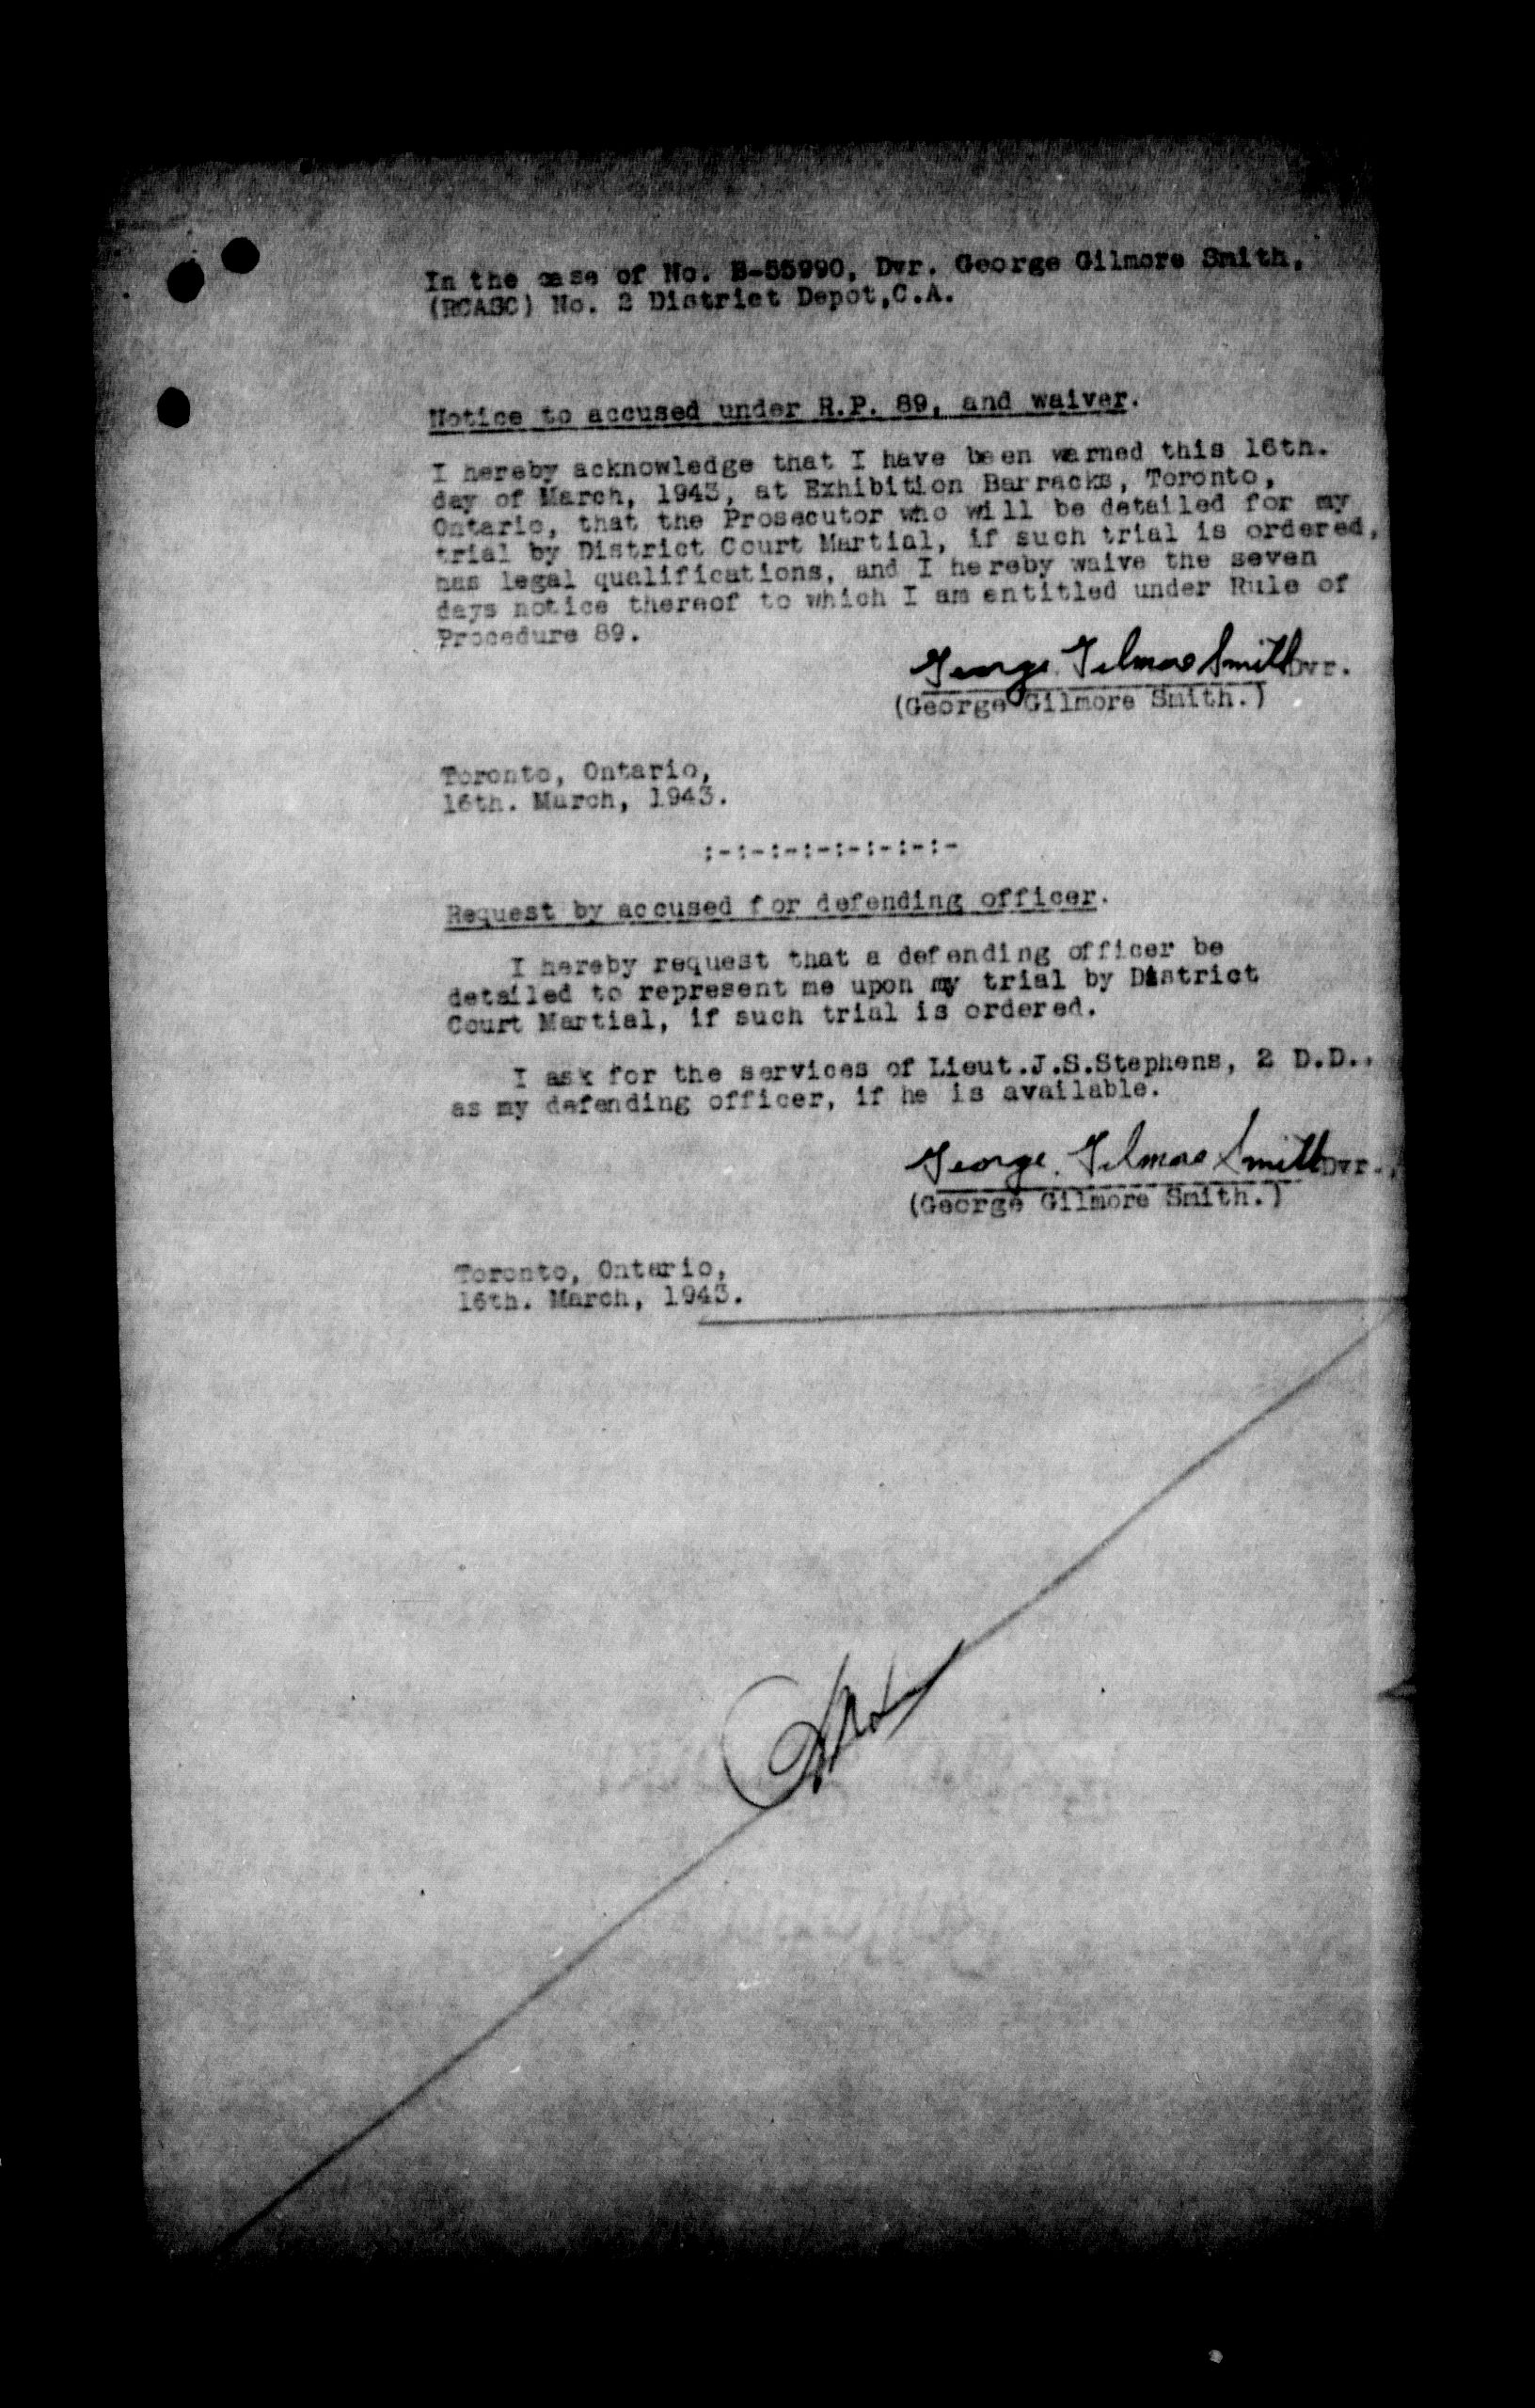 In the case of No. B-55990, Dvr. George Gilmore Smith,
(RCASC) No. 2 District Depot,C.A.
Notice to accused under R.P. 89, and waiver.
I hereby acknowledge that I have been warned this 16th.
day of March, 1943, at Exhibition Barracks, Toronto,
Ontario, that the Prosecutor who will be detailed for my
trial by District Court Martial, if such trial is ordered,
has legal qualifications, and I hereby waive the seven
days notice thereof to which I am entitled under Rule of
Procedure 89.
George Gilmore Smith Dvr.
(George Gilmore Smith.)
Toronto, Ontario,
16th. March, 1943.
:-:-:-:-:-:-:-:-
Request by accused for defending officer.
I hereby request that a defending officer be
detailed to represent me upon my trial by District
Court Martial, if such trial is ordered.
I ask for the services of Lieut.J.S.Stephens, 2 D.D.,
as my defending officer, if he is available.
George Gilmore Smith Dvr.,
(George Gilmore Smith.)
Toronto, Ontario,
16th. March, 1943.